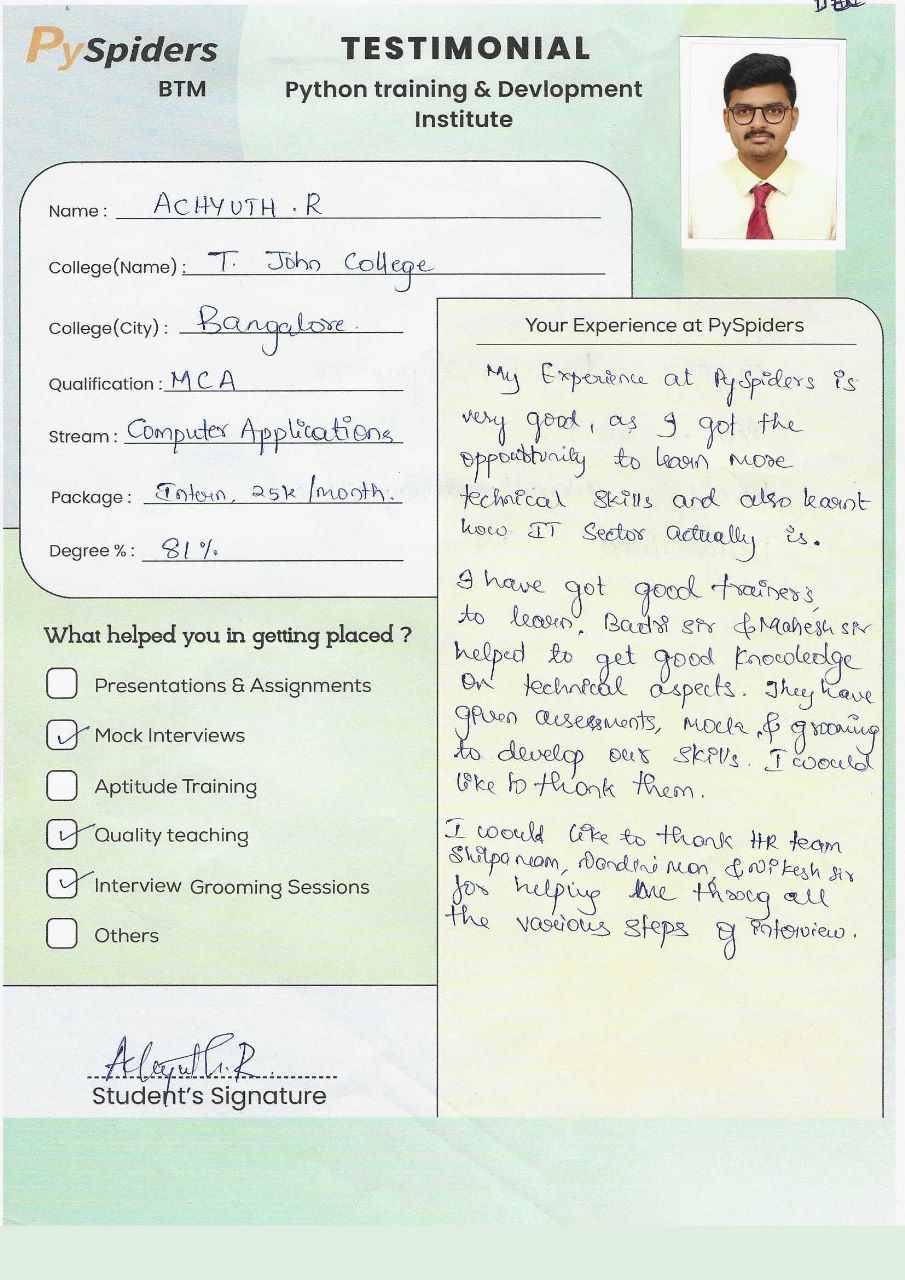 PySpiders
BTM
TESTIMONIAL
Python training & Devlopment
Institute
Name : ACHYUTH . R
College(Name) : T. John College
College(City) : Bangalore.
Qualification : MCA
Stream : Computer Applications
Package : Intern, 25k/month.
Degree % : 81%
What helped you in getting placed ?
Presentations & Assignments
Mock Interviews
Aptitude Training
Quality teaching
Interview Grooming Sessions
Others
Achyuth.R.
Student's Signature
Your Experience at PySpiders
My Experience at PySpiders is
very good, as I got the
opportunity to learn more
technical skills and also learnt
how IT Sector actually is.
I have got good trainers
to learn. Badri sir & Mahesh sir
helped to get good knowledge
on technical aspects. They have
given assessments, mock, & grooming
to develop our skills. I would
like to thank them.
I would like to thank HR team
Shilpa mam, Nandini mam, & Nikesh sir
for helping me throug all
the various steps of interview.